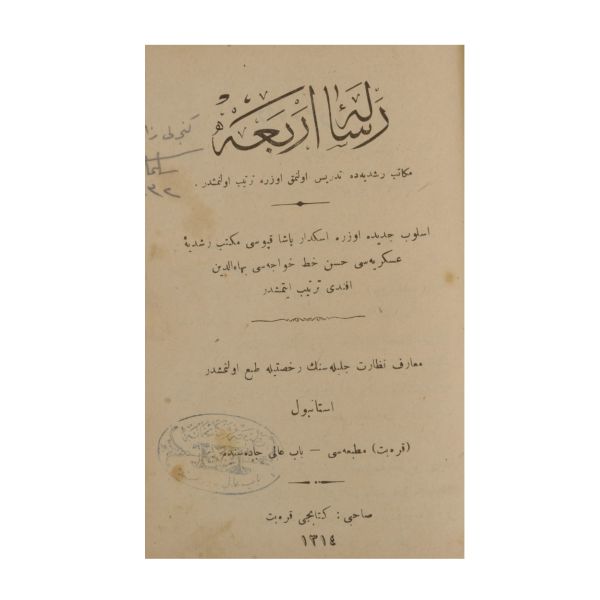 رسالۀ اربعه
مكاتب رشديه‌ده تدريس اولنمق اوزره ترتيب اولنمشدر .
اسلوب جديده اوزره اسكدار پاشا قپوسى مكتب رشديۀ
عسكريه‌سى حسن خط خواجه‌سى بهاءالدين
افندى ترتيب ايتمشدر
معارف نظارت جليله‌سنك رخصتيله طبع اولنمشدر
استانبول
(قره‌بت) مطبعه‌سى — باب عالى جاده‌سنده
صاحبى : كتابجى قره‌بت
١٣١٤